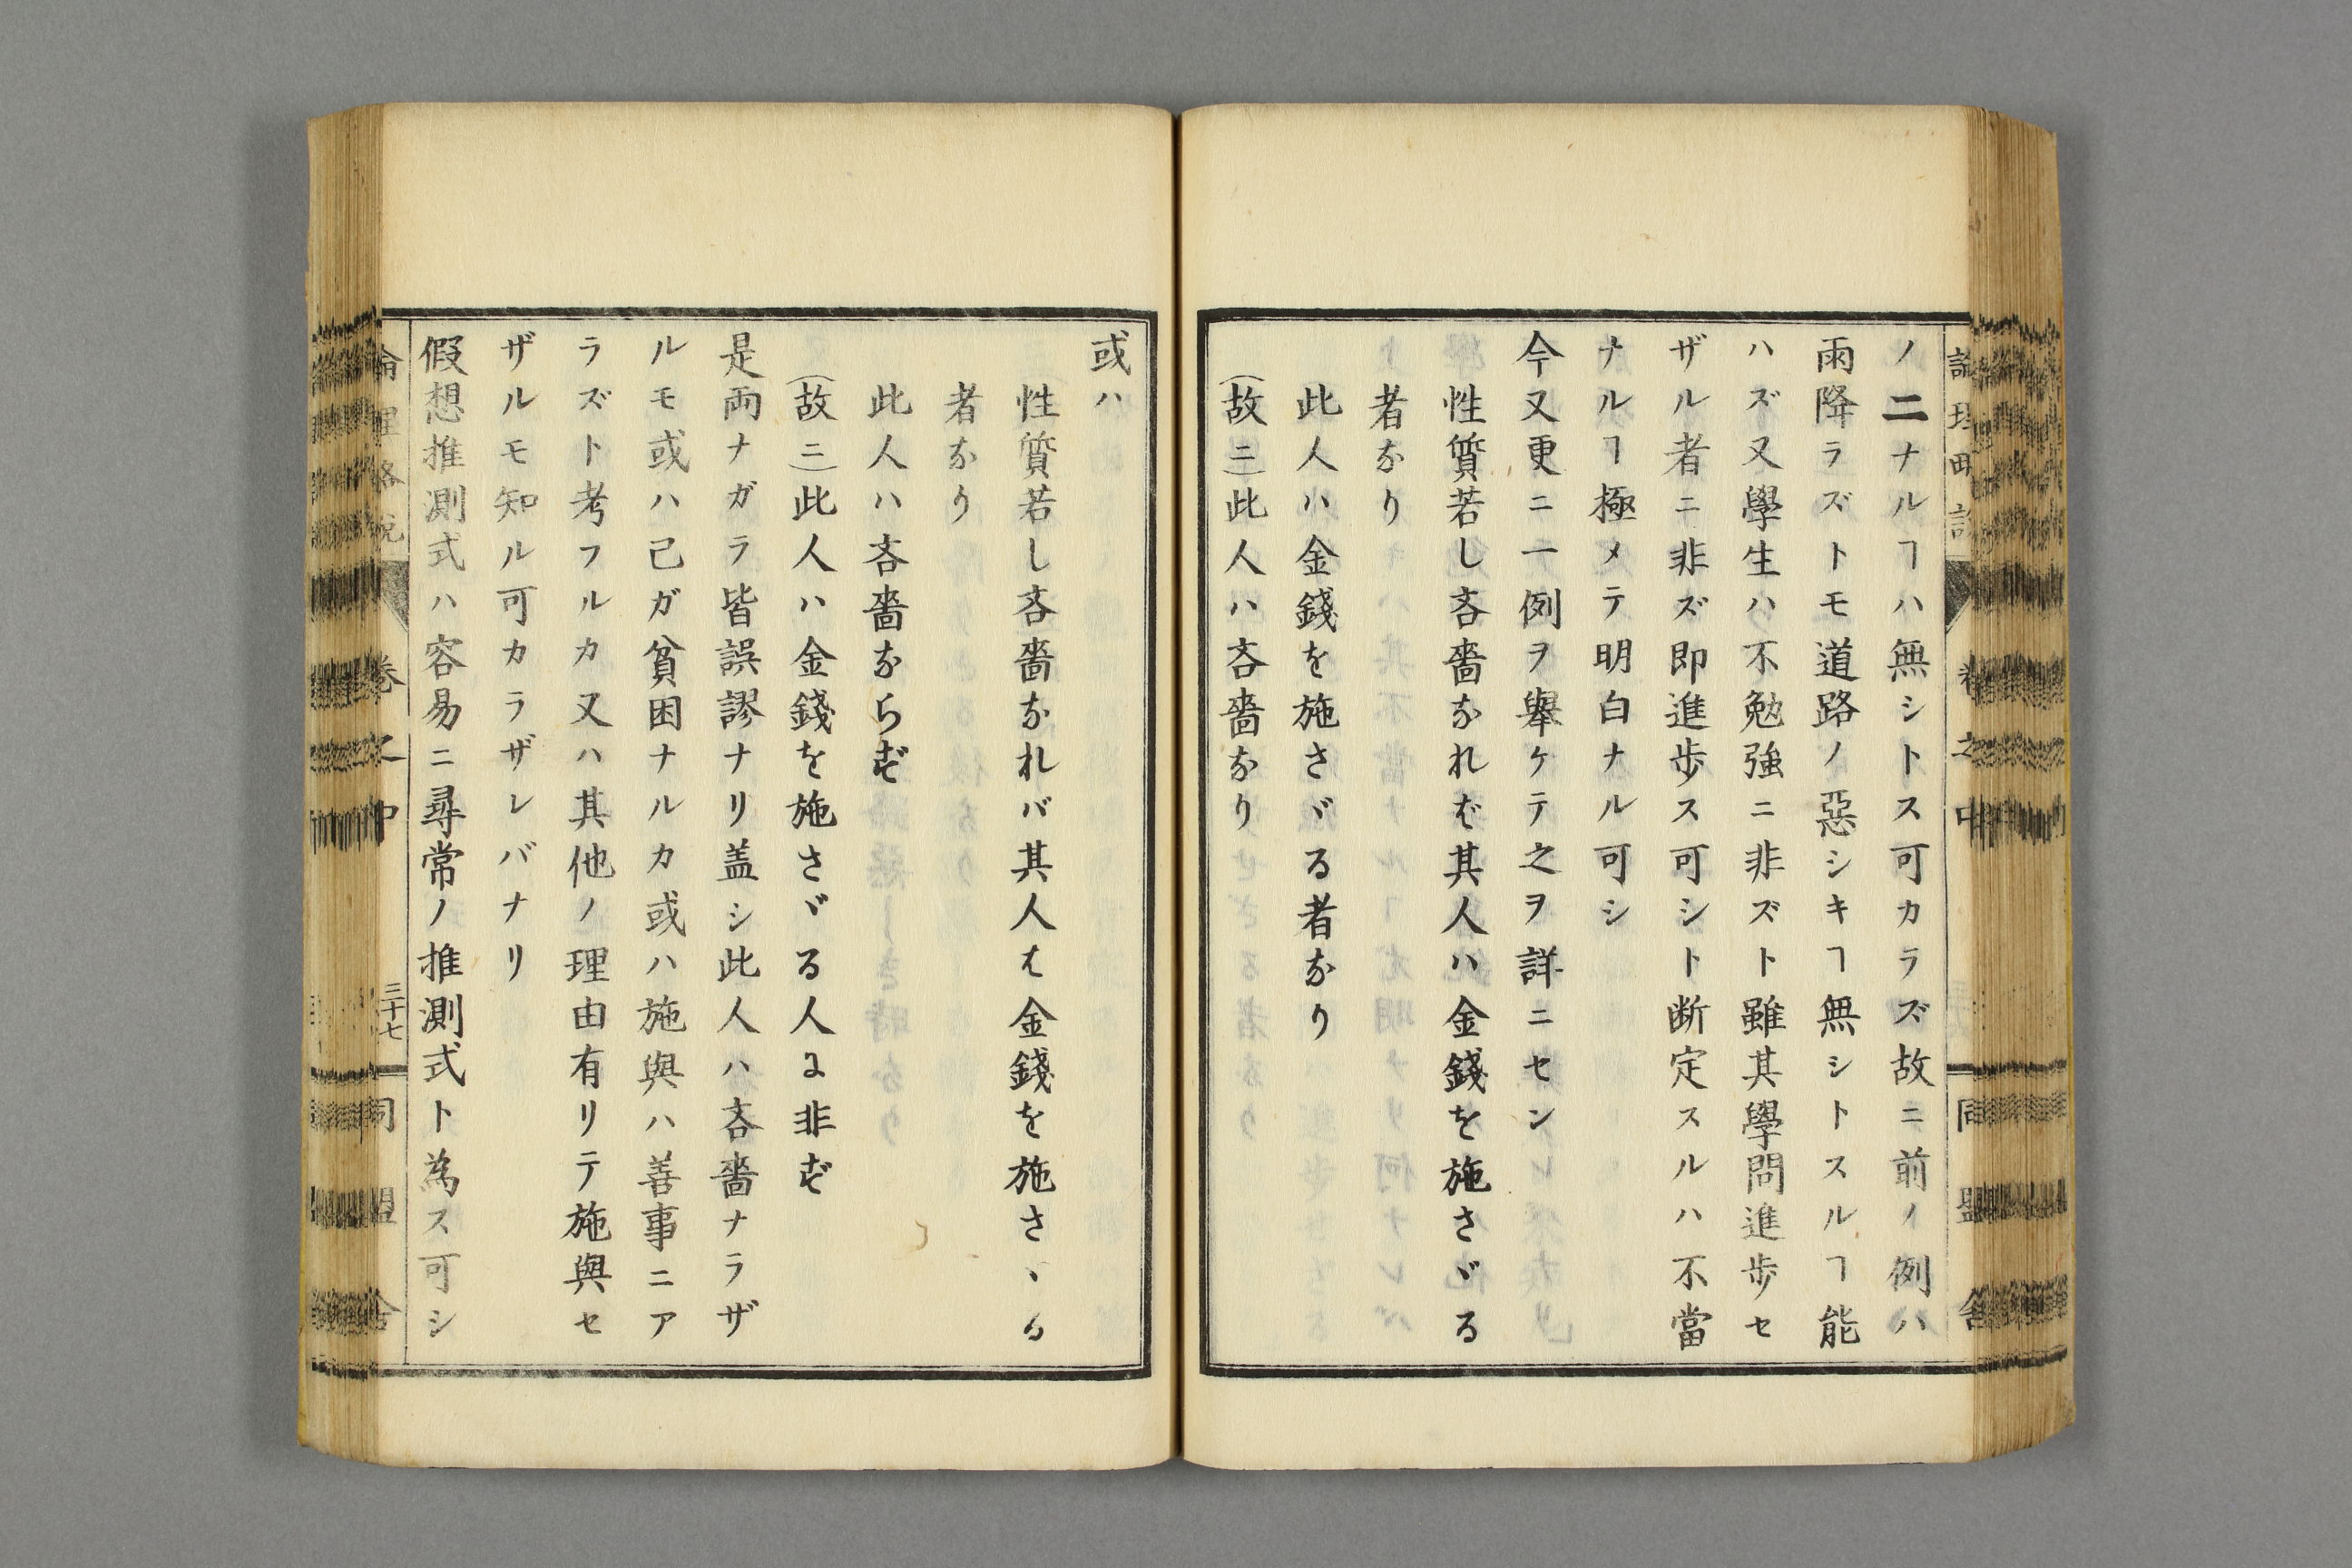 ノ二ナルヿハ無シトス可カラズ故ニ前ノ例ハ
雨降ラズトモ道路ノ惡シキヿ無シトスルヿ能
ハズ又學生ハ不勉強ニ非ズト雖其學問進歩セ
ザル者ニ非ズ即進歩ス可シト断定スルハ不當
ナルヿ極メテ明白ナル可シ
今又更ニ一例ヲ舉ケテ之ヲ詳ニセン
性質若し吝嗇なれば其人ハ金錢を施さゞる
者なり
此人ハ金錢を施さゞる者なり
(故ニ)此人ハ吝嗇なり
或ハ
性質若し吝嗇なれバ其人は金錢を施さゝる
者なり
此人ハ吝嗇ならず
(故ニ)此人ハ金錢を施さゞる人に非ず
是両ナガラ皆誤謬ナリ盖シ此人ハ吝嗇ナラザ
ルモ或ハ己ガ貧困ナルカ或ハ施與ハ善事ニア
ラズト考フルカ又ハ其他ノ理由有リテ施與セ
ザルモ知ル可カラザレバナリ
假想推測式ハ容易ニ尋常ノ推測式ト為ス可シ
卷之中
三十七
同盟舎